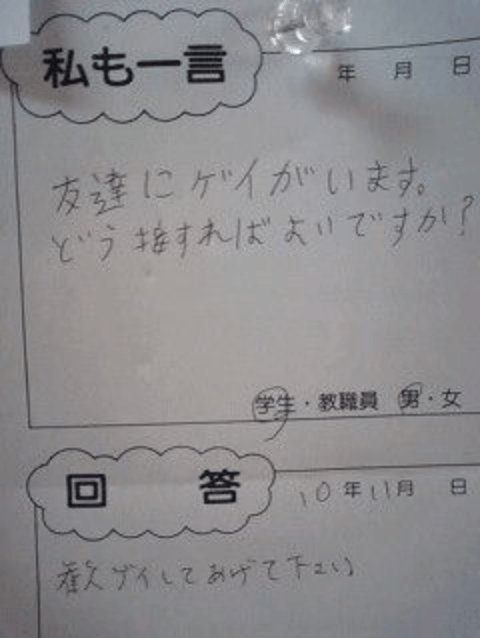 私も一言
年 月 日
友達にゲイがいます。
どう接すればよいですか?
学生・教職員 男・女
回 答
10年11月 日
歓ゲイしてあげて下さい